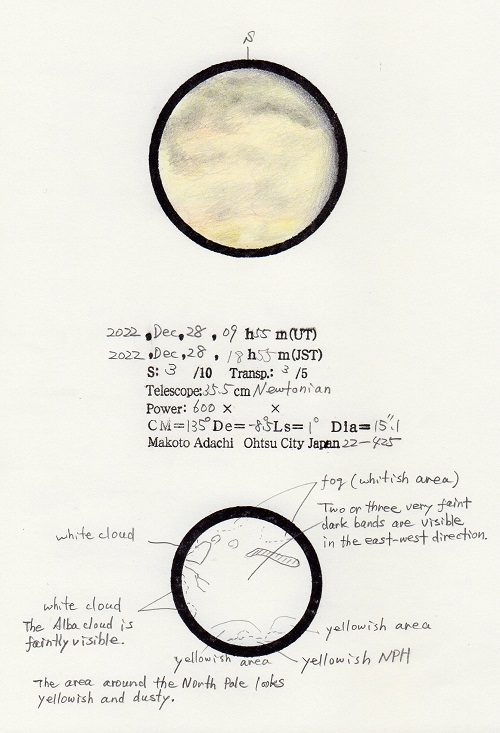 S
2022, Dec, 28, 09 h 55 m (UT)
2022, Dec, 28, 18 h 55 m (JST)
S: 3 /10 Transp.: 3 /5
Telescope: 35.5 cm Newtonian
Power: 600 × ×
CM=135° De=-8.5 Ls= 1° Dia=15".1
Makoto Adachi Ohtsu City Japan 22-425
fog (whitish area)
Two or three very faint
dark bands are visible
in the east-west direction.
white cloud
white cloud
The Alba cloud is
faintly visible.
yellowish area
yellowish area
yellowish NPH
The area around the North Pole looks
yellowish and dusty.